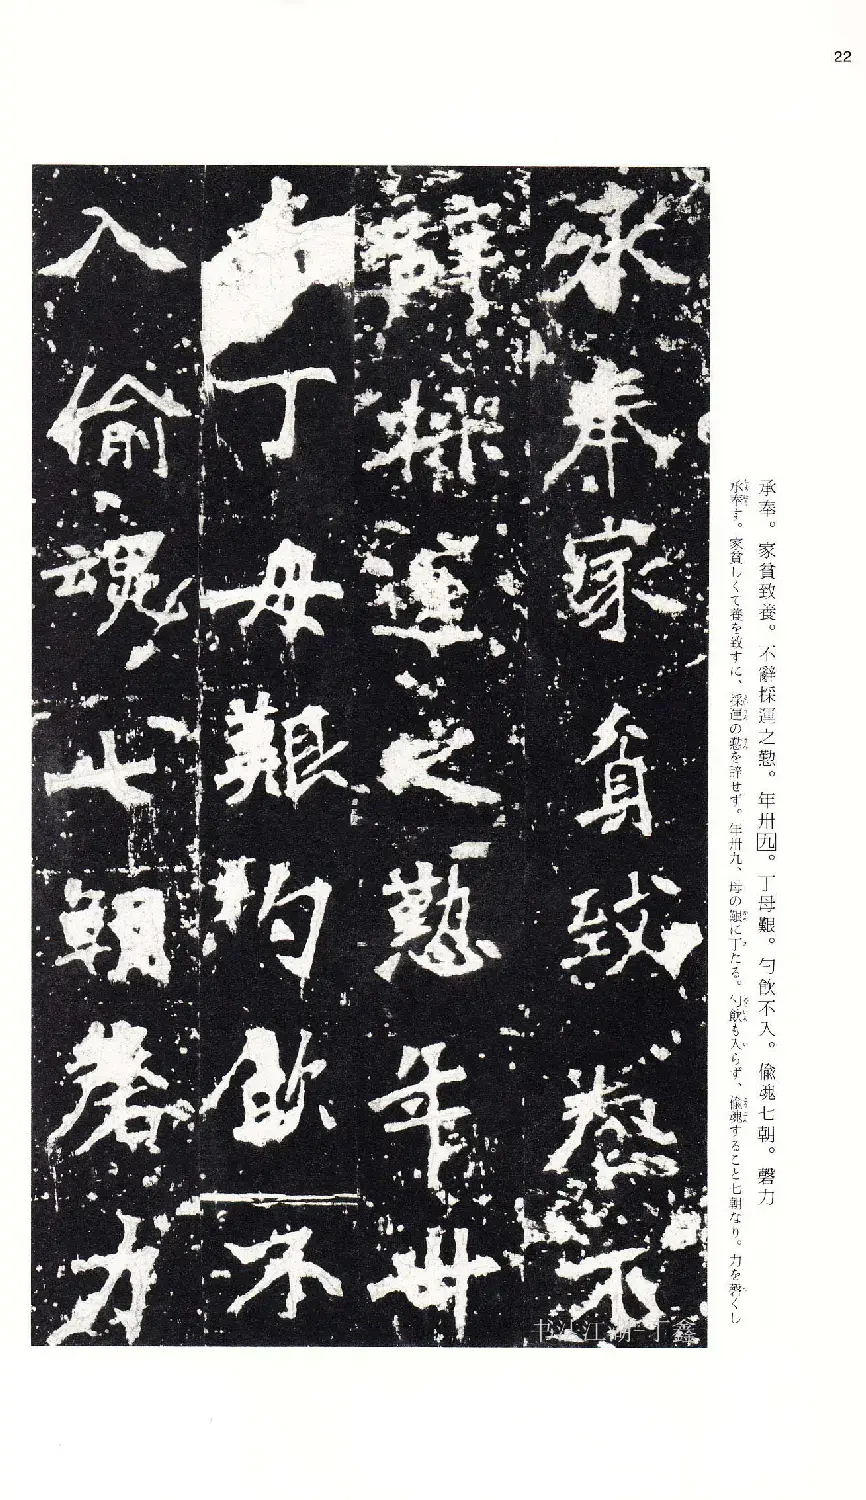 22
承奉。家貧致養。不辭採運之懃。年卅九。丁母艱。勺飲不入。偸魂七朝。磬力
承奉す。家貧しくて養を致すに、採運の懃を辞せず。年卅九、母の艱に丁たる。勺飲も入らず、偸魂すること七朝なり。力を磬くし
承奉家貧致養不
辭採運之懃年卅
丁母艱勺飲不
入偸魂七朝磬力
书法江湖-丁鑫